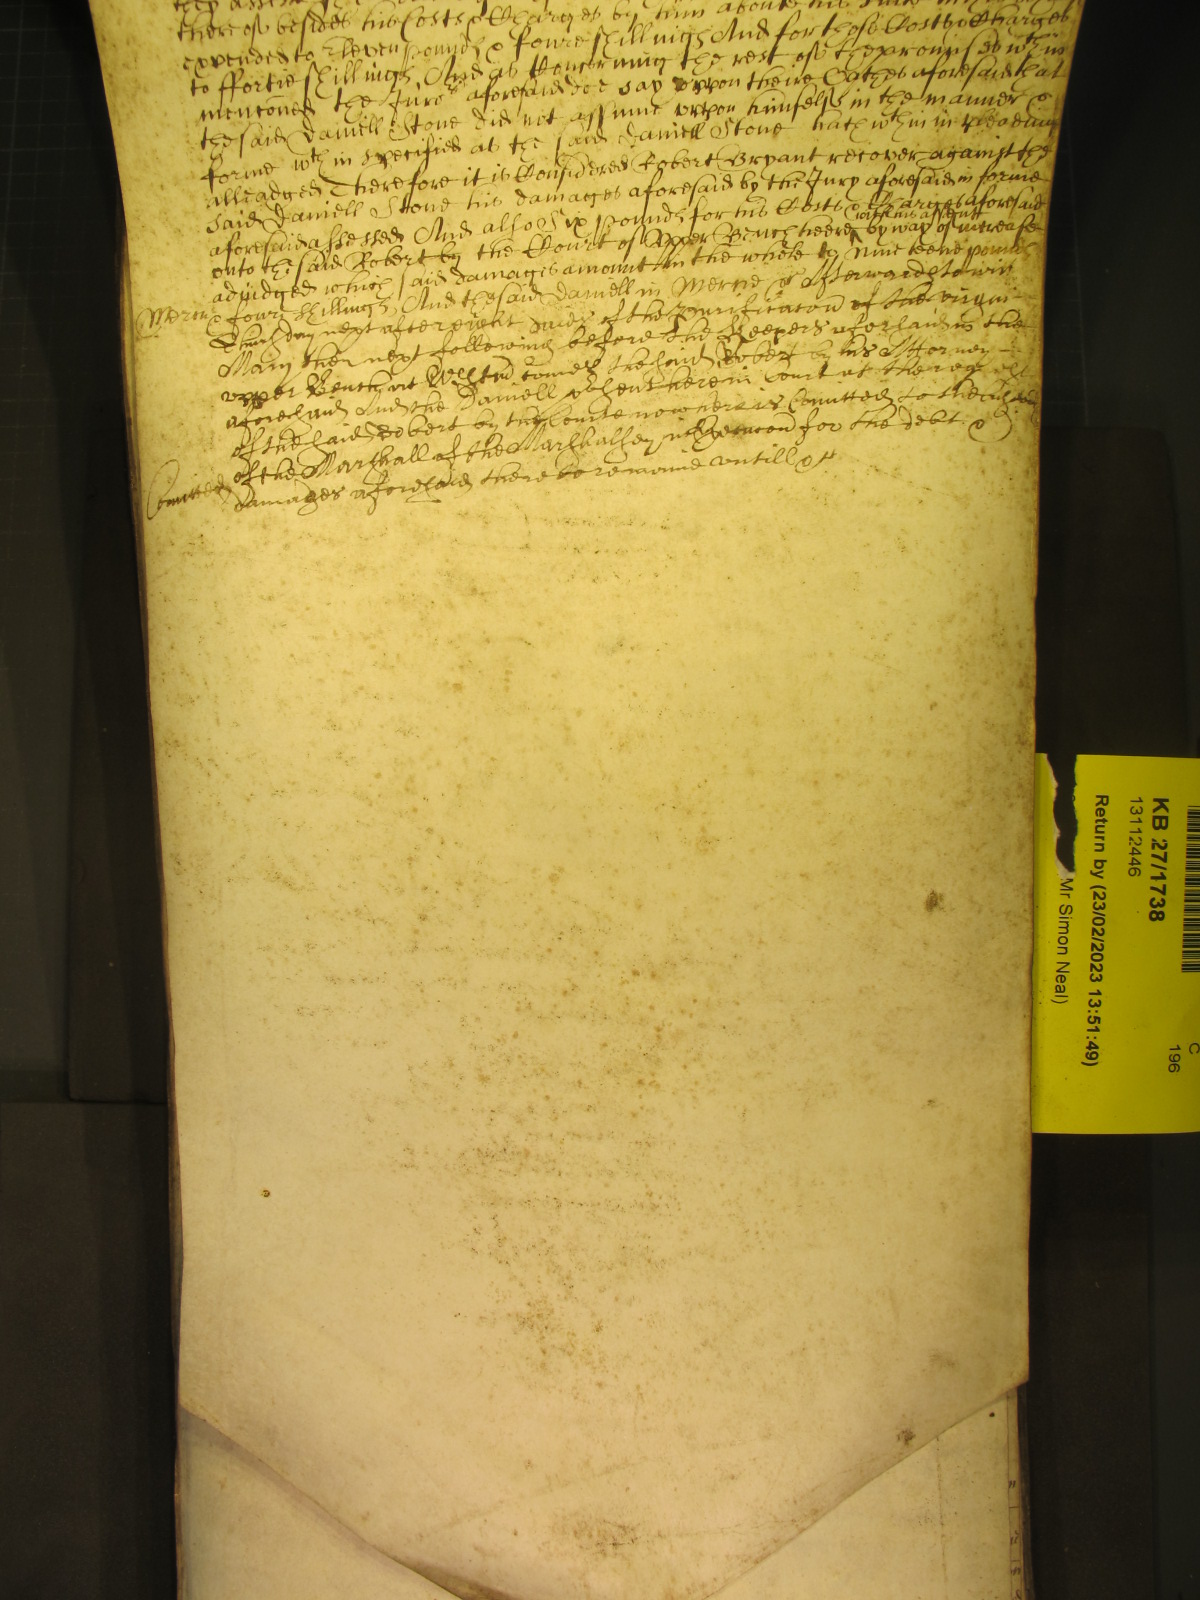 thereof besides his Costs & Charges by him about his suite in
expended to Eleven pounds & fowre shillings And for those Costs & Charges
to ffortie shillings And as Concerning the rest of the promisses wthin
menconed the Juro rs aforesaid doe say uppon theire Oathes aforesaid that
the said Daniell Stone did not assume uppon himselfe in the manner &
forme wthin specified as the said Daniell Stone hath wthin in pleading
alleadged Therefore it is Considered Robert Bryant recover against the
said Daniell Stone his damages aforesaid by the Jury aforesaid in forme
aforesaid assessed And also Six pounds for his Costs & Charges aforesaid
unto the said Robert by the Court of Upper Bench heere with his assent by way of increase
adjudged which said damages amount in the whole to nineteene pounds
Mercy & fowre shillings And the said Daniell in Mercie & Afterwards to wit
Thursday next after eight daies of the Purificacon of the virgin
Mary then next following before the Keepers aforesaid in the
upper Bench at Westm comes the said Robert by his Attorney
aforesaid And the Daniell present here in Court at the request
of the said Robert by the Court now here is Comitted to the
Comitted of the Marshall of the Marshalsey in Execucon for the debt &
damages aforesaid there to remaine untill &c
KB 27/1738
13112446
Return by (23/02/2023 13:51:49)
Mr Simon Neal)
C
196